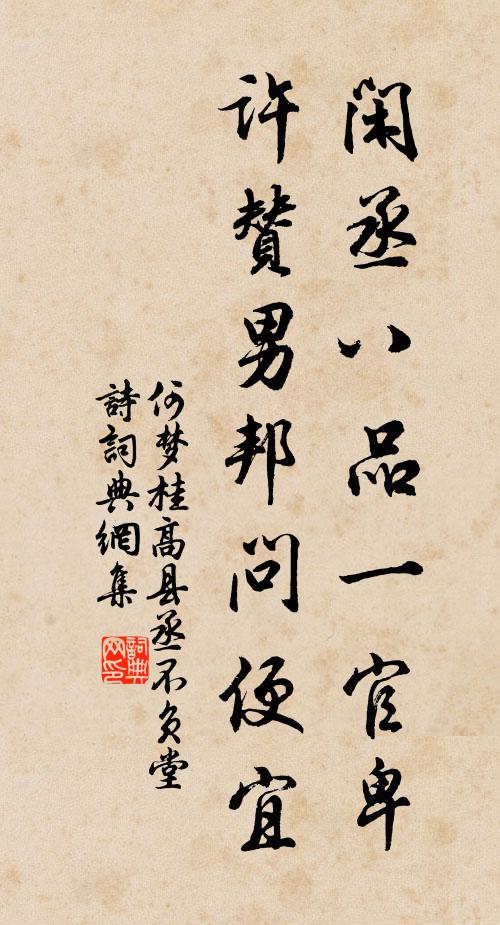 闲丞八品一官卑
许赞男邦问便宜
何梦桂高县丞不负堂
詩詞典網集
詞典网印